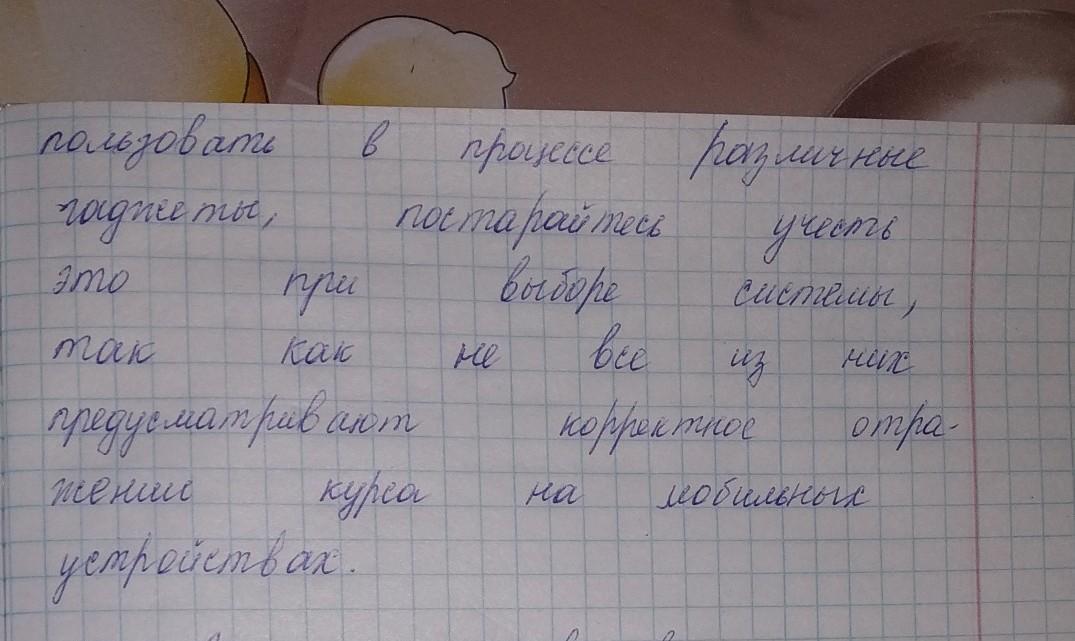 пользовать в процессе различные
гаджеты, постарайтесь учесть
это при выборе системы,
так как не все из них
предусматривают корректное отра-
жении курса на мобильных
устройствах.